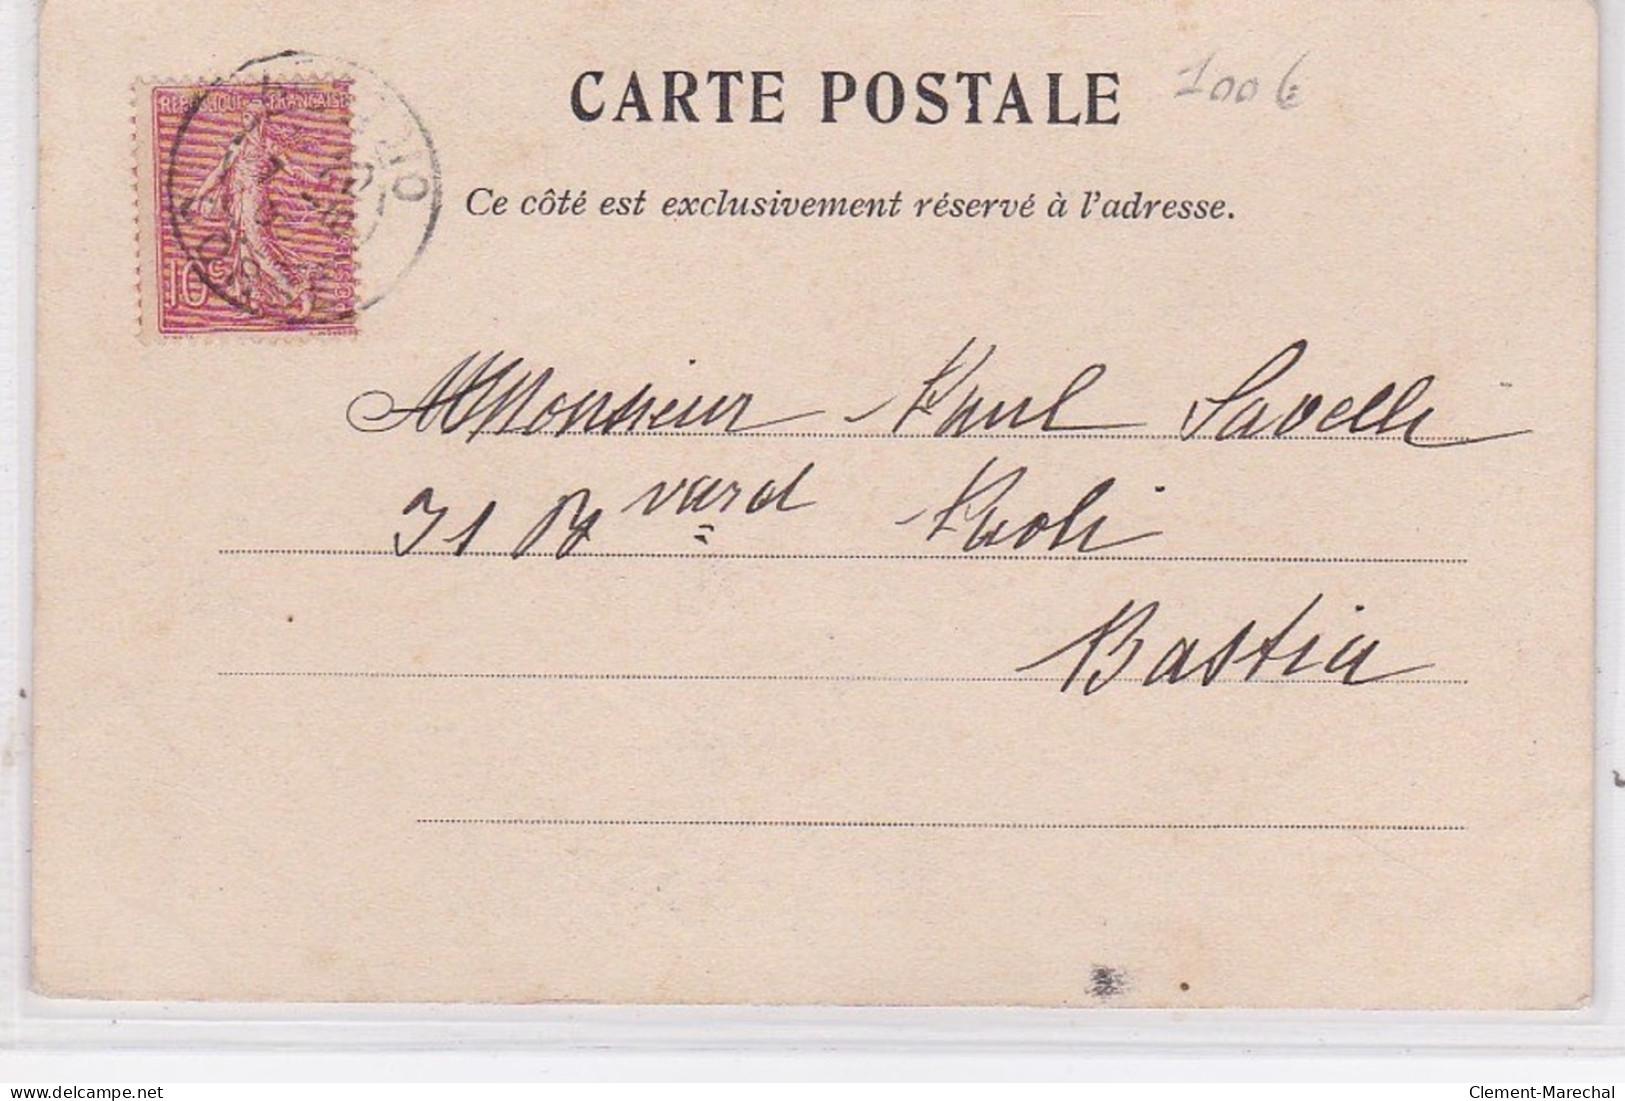 CARTE POSTALE
100 €
REPUBLIQUE FRANÇAISE
10c
POSTES
Ce côté est exclusivement réservé à l'adresse.
Monsieur Paul Savelli
31 Bvard Paoli
Bastia
delcampe.net
Clement-Marechal